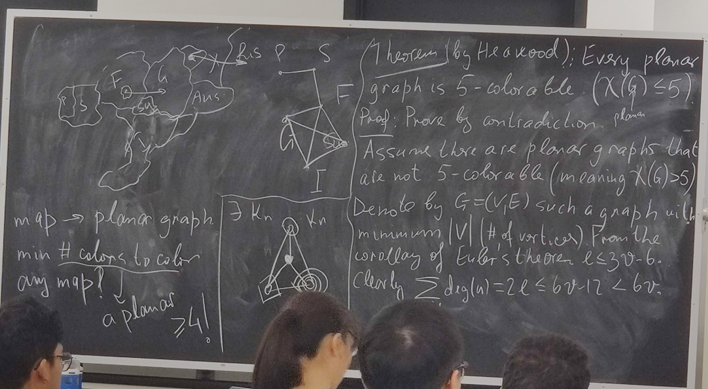 F
G
Rus
P
S
P
S
Sw
Aus
F
G
Sw
I
map → planar graph
min # colors to color
any map?
a planar
≥4!
∃ Kn
Kn
Theorem (by Heawood): Every planar
graph is 5-colorable. (χ(G) ≤ 5)
Proof: Prove by contradiction.
planar
Assume there are planar graphs that
are not 5-colorable (meaning χ(G)>5)
Denote by G=(V,E) such a graph with
minimum |V| (# of vertices) From the
corollary of Euler's theorem e≤3v-6.
Clearly ∑ deg(u) = 2e ≤ 6v-12 < 6v.